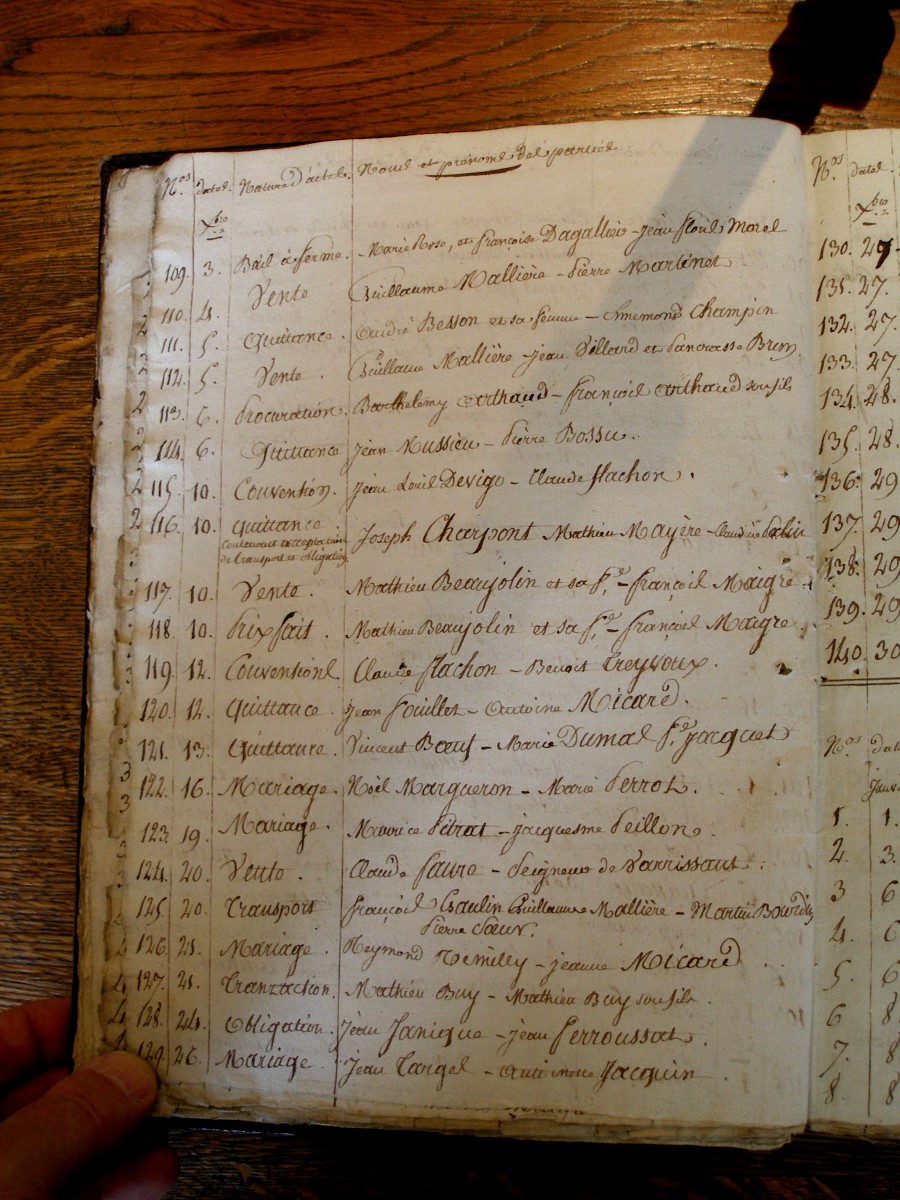 Nos dates. Nature D'actes. Noms et prénoms des parties
Xbre
109. 3. Bail à ferme. Marie Rose, et françoise Dagallier - jean floris Morel
110. 4. Vente Guillaume Mallière - Pierre Martinet
111. 5. Quittance. André Besson et sa femme - Ennemond Champin
112. 5. Vente. Guillaume Mallière - jean Villard et Pancrasse Brun
113. 6. Procuration. Barthelemy Arthaud - françois Arthaud son fils
114. 6. Quittance Jean Mussieu - Pierre Bossu.
115. 10. Convention. Jean Louis Devigo - Claude flachon.
116. 10. Quittance Joseph Charpont Mathieu Mayère - Claudine
Contenant acceptation
de transport et obligation
117. 10. Vente. Mathieu Beaujolin et sa fe. - françois Maigre
118. 10. Prix fait. Mathieu Beaujolin et sa fe. - françois Maigre
119. 12. Conventions. Claude flachon - Benoit Treyvoux.
120. 12. Quittance. Jean Fouillet - Antoine Micard.
121. 13. Quittance. Vincent Bœuf - Marie Dumas fe. Jacquet
122. 16. Mariage. Noël Margueron - Marie Perrot.
123. 19. Mariage. Maurice Pitrat - jacquesme Peillon.
124. 20. Vente. Claude faure - Seigneur de Varrissant.
125. 20. Transport françois Gaulin Guillaume Mallière - Martin
Pierre Sœur.
126. 21. Mariage. Reymond Remilley - jeanne Micard
127. 21. Tranzaction. Mathieu Buy - Mathieu Buy son fils.
128. 24. Obligation. Jean Janique - jean Perroussat.
129. 26. Mariage. Jean Targe - Antoinette Jacquin
Nos dates
Xbre
130. 27.
131. 27.
132. 27.
133. 27.
134. 28.
135. 28.
136. 29
137. 29
138. 29
139. 29
140. 30
Nos
1. 1.
2. 3.
3 6
4. 6
5. 6
6 8
7. 8
8. 8